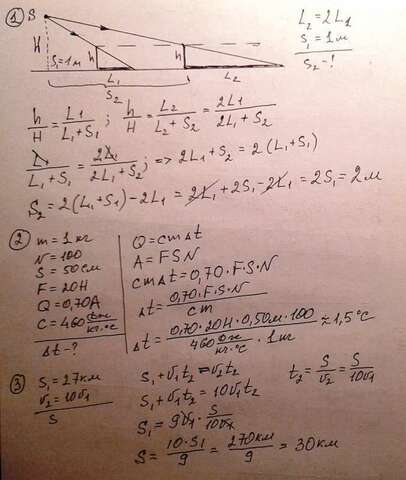 ① S
H
S₁=1м
h
h
L₁
L₂
S₂
L₂ = 2L₁
S₁ = 1м
S₂ - !
h/H = L₁/(L₁+S₁) ; h/H = L₂/(L₂+S₂) = 2L₁/(2L₁+S₂)
L₁/(L₁+S₁) = 2L₁/(2L₁+S₂) ; => 2L₁+S₂ = 2(L₁+S₁)
S₂ = 2(L₁+S₁) - 2L₁ = 2L₁ + 2S₁ - 2L₁ = 2S₁ = 2м
② m = 1 кг
N = 100
S = 50 см
F = 20Н
Q = 0,70A
C = 460 Дж/кг·°C
Δt - ?
Q = cmΔt
A = FSN
cmΔt = 0,70·F·S·N
Δt = 0,70·F·S·N/cm
Δt = 0,70·20Н·0,50м·100/(460 Дж/кг·°C · 1кг) ≈ 1,5°C
③ S₁ = 27км
v₂ = 10v₁
S
S₁ + v₁t₂ = v₂t₂
S₁ + v₁t₂ = 10v₁t₂
S₁ = 9v₁ · S/10v₁
S = 10·S₁/9 = 270км/9 = 30км
t₂ = S/v₂ = S/10v₁